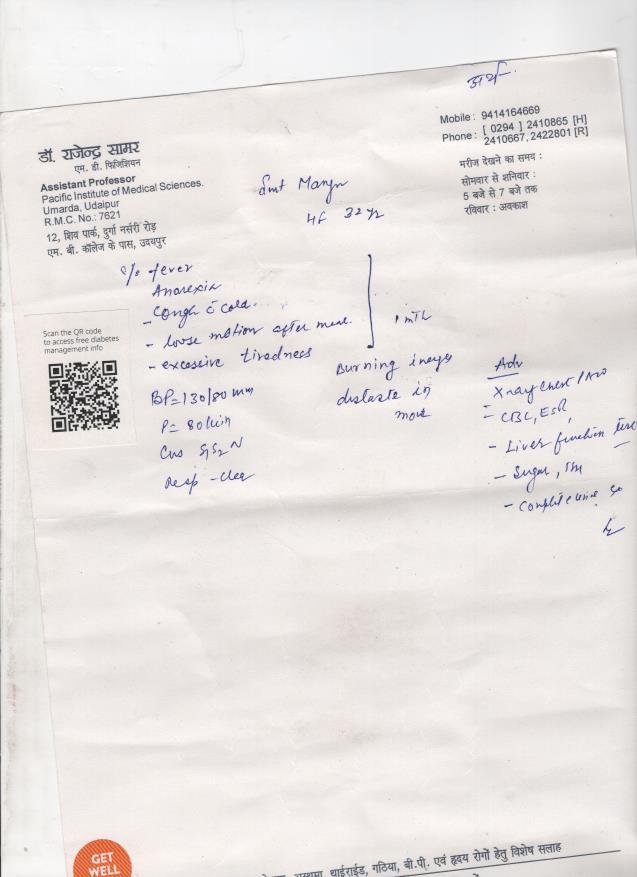 Mobile : 9414164669
Phone : [ 0294 ] 2410865 [H]
2410667, 2422801 [R]
मरीज देखने का समय :
सोमवार से शनिवार :
5 बजे से 7 बजे तक
रविवार : अवकाश
डॉ. राजेन्द्र सामर
एम. डी. फिजिशियन
Assistant Professor
Pacific Institute of Medical Sciences.
Umarda, Udaipur
R.M.C. No.: 7621
12, शिव पार्क, दुर्गा नर्सरी रोड़
एम. बी. कॉलेज के पास, उदयपुर
Smt
32 yr
c/o fever
Anorexia
- Cough c̄ cold
- loose motion after meal.
- excessive tiredness
Burning in eyes
distaste in
BP=130/80 mm
P= 80/min
Cvs S1S2 N
Resp - clear
Adv
X ray chest PA
- CBC, ESR,
- Liver function test
- Sugar,
- Complete urine
Scan the QR code
to access free diabetes
management info
GET
WELL
अस्थमा, थाईराईड, गठिया, बी.पी. एवं हृदय रोगों हेतु विशेष सलाह